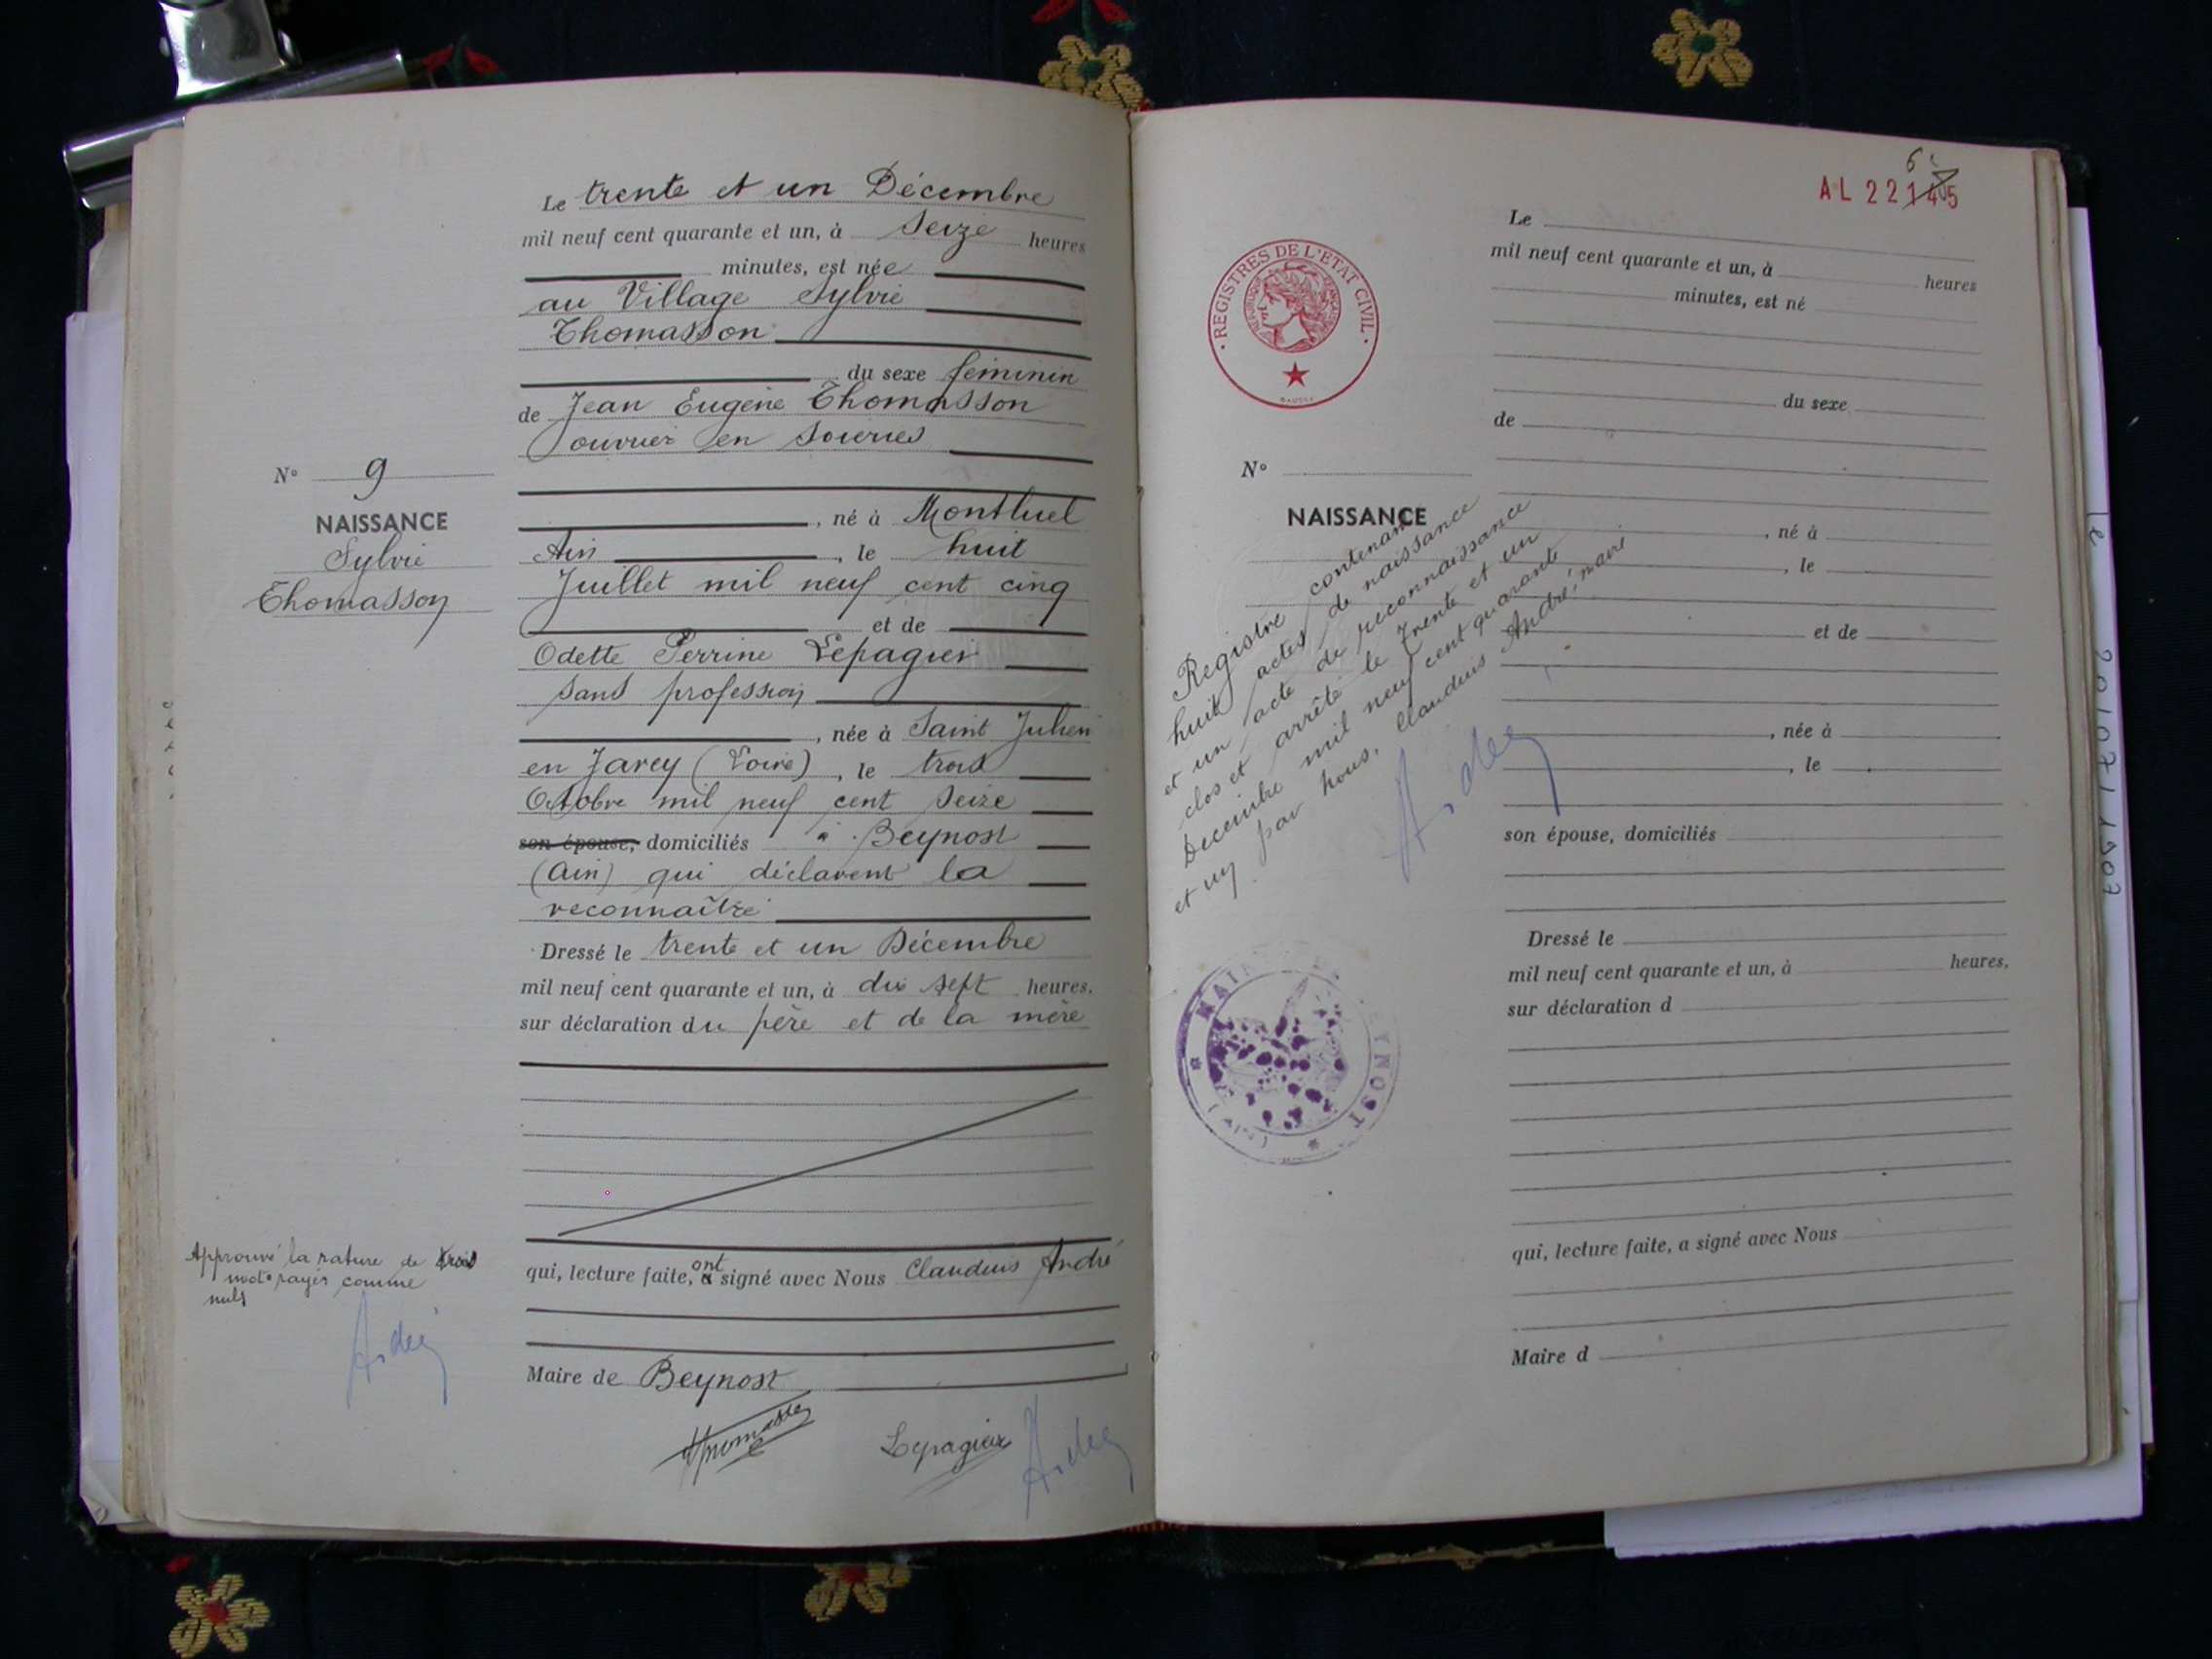 Le trente et un Décembre
mil neuf cent quarante et un, à Seize heures
minutes, est née
au Village Sylvie
Thomasson
du sexe féminin
de Jean Eugène Thomasson
ouvrier en soieries
N° 9
NAISSANCE
Sylvie
Thomasson
, né à Montluel
Ain , le huit
Juillet mil neuf cent cinq
et de
Odette Perrine Lepagier
sans profession
, née à Saint Julien
en Jarey (Loire) , le trois
Octobre mil neuf cent seize
son épouse, domiciliés à Beynost
(Ain) qui déclarent la
reconnaître
Dressé le trente et un Décembre
mil neuf cent quarante et un, à dix sept heures.
sur déclaration du père et de la mère
Approuvé la rature de trois
mots rayés comme
nuls
André
qui, lecture faite, ont a signé avec Nous Claudius André
Maire de Beynost
Thomasson Lepagier André
AL 22145
REGISTRES DE L'ÉTAT CIVIL
Le
mil neuf cent quarante et un, à heures
minutes, est né
du sexe
de
N°
NAISSANCE
, né à
, le
et de
, née à
, le
son épouse, domiciliés
Registre contenant
huit actes de naissance
et un acte de reconnaissance
clos et arrêté le trente et un
Décembre mil neuf cent quarante
et un par nous, Claudius André, maire
André
MAIRIE DE BEYNOST
(AIN)
Dressé le
mil neuf cent quarante et un, à heures,
sur déclaration d
qui, lecture faite, a signé avec Nous
Maire d